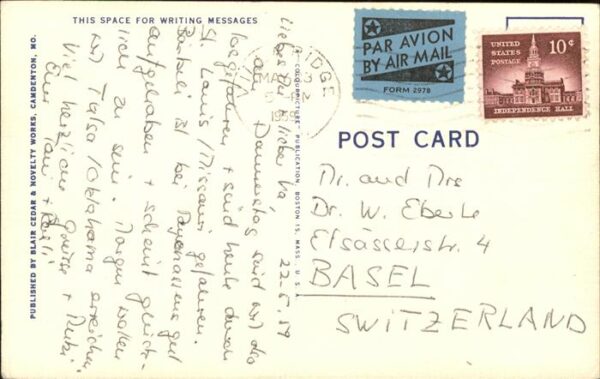 THIS SPACE FOR WRITING MESSAGES
PUBLISHED BY BLAIR CEDAR & NOVELTY WORKS, CAMDENTON, MO.
"COLOURPICTURE" PUBLICATION, BOSTON 15, MASS., U.S.A.
22-5.59
Lieber lieber
am Donnerstag sind wir
losgefahren + sind heute durch
St. Louis/Missouri gefahren.
ist bei
aufgehoben + scheint glück-
lich zu sein. Morgen wollen
wir Tulsa/Oklahoma erreichen
Viel herzliche Grüsse +
PAR AVION
BY AIR MAIL
FORM 2978
1959
UNITED STATES POSTAGE
10¢
INDEPENDENCE HALL
POST CARD
Dr. and Mrs
Dr. W. Eberle
Elsässerstr. 4
BASEL
SWITZERLAND